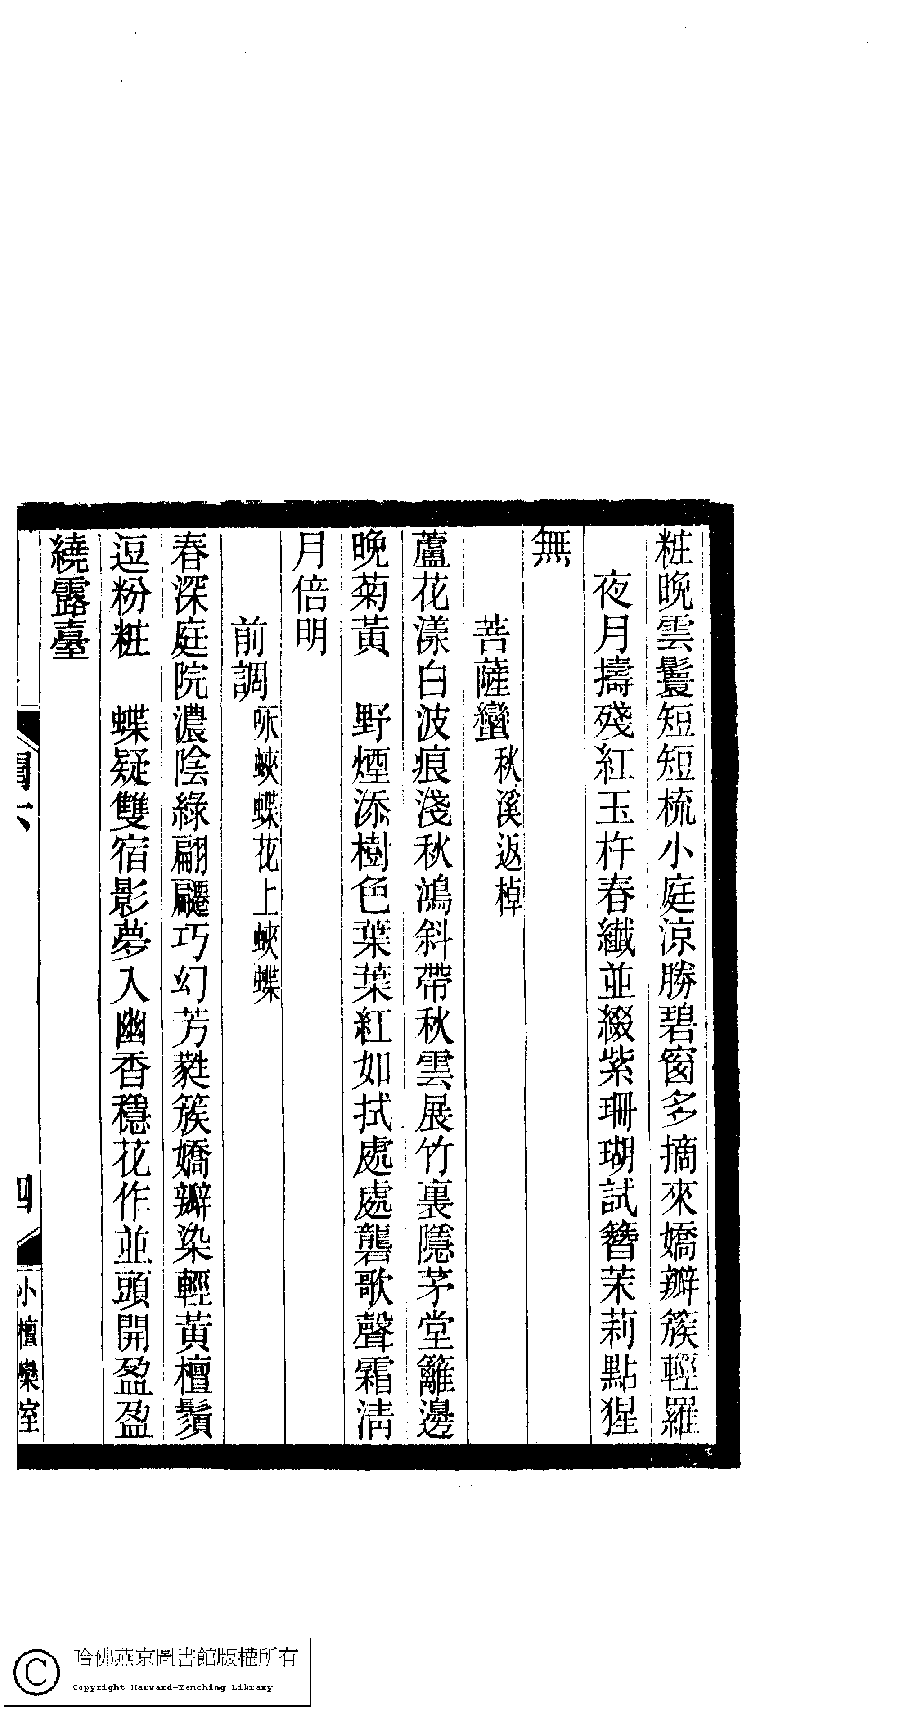 粧晚雲鬟短短梳小庭涼勝碧窗多摘來嬌瓣簇輕羅
夜月擣殘紅玉杵春纖並綴紫珊瑚試簪茉莉點猩
無
菩薩蠻秋溪返棹
蘆花漾白波痕淺秋鴻斜帶秋雲展竹裏隱茅堂籬邊
晚菊黃　野煙添樹色葉葉紅如拭處處礱歌聲霜清
月倍明
前調咏蛺蝶花上蛺蝶
春深庭院濃陰綠翩翾巧幻芳蕤簇嬌瓣染輕黃檀鬚
逗粉粧　蝶疑雙宿影夢入幽香穩花作並頭開盈盈
繞露臺
四
小檀欒室
哈佛燕京圖書館版權所有
Copyright Harvard-Yenching Library